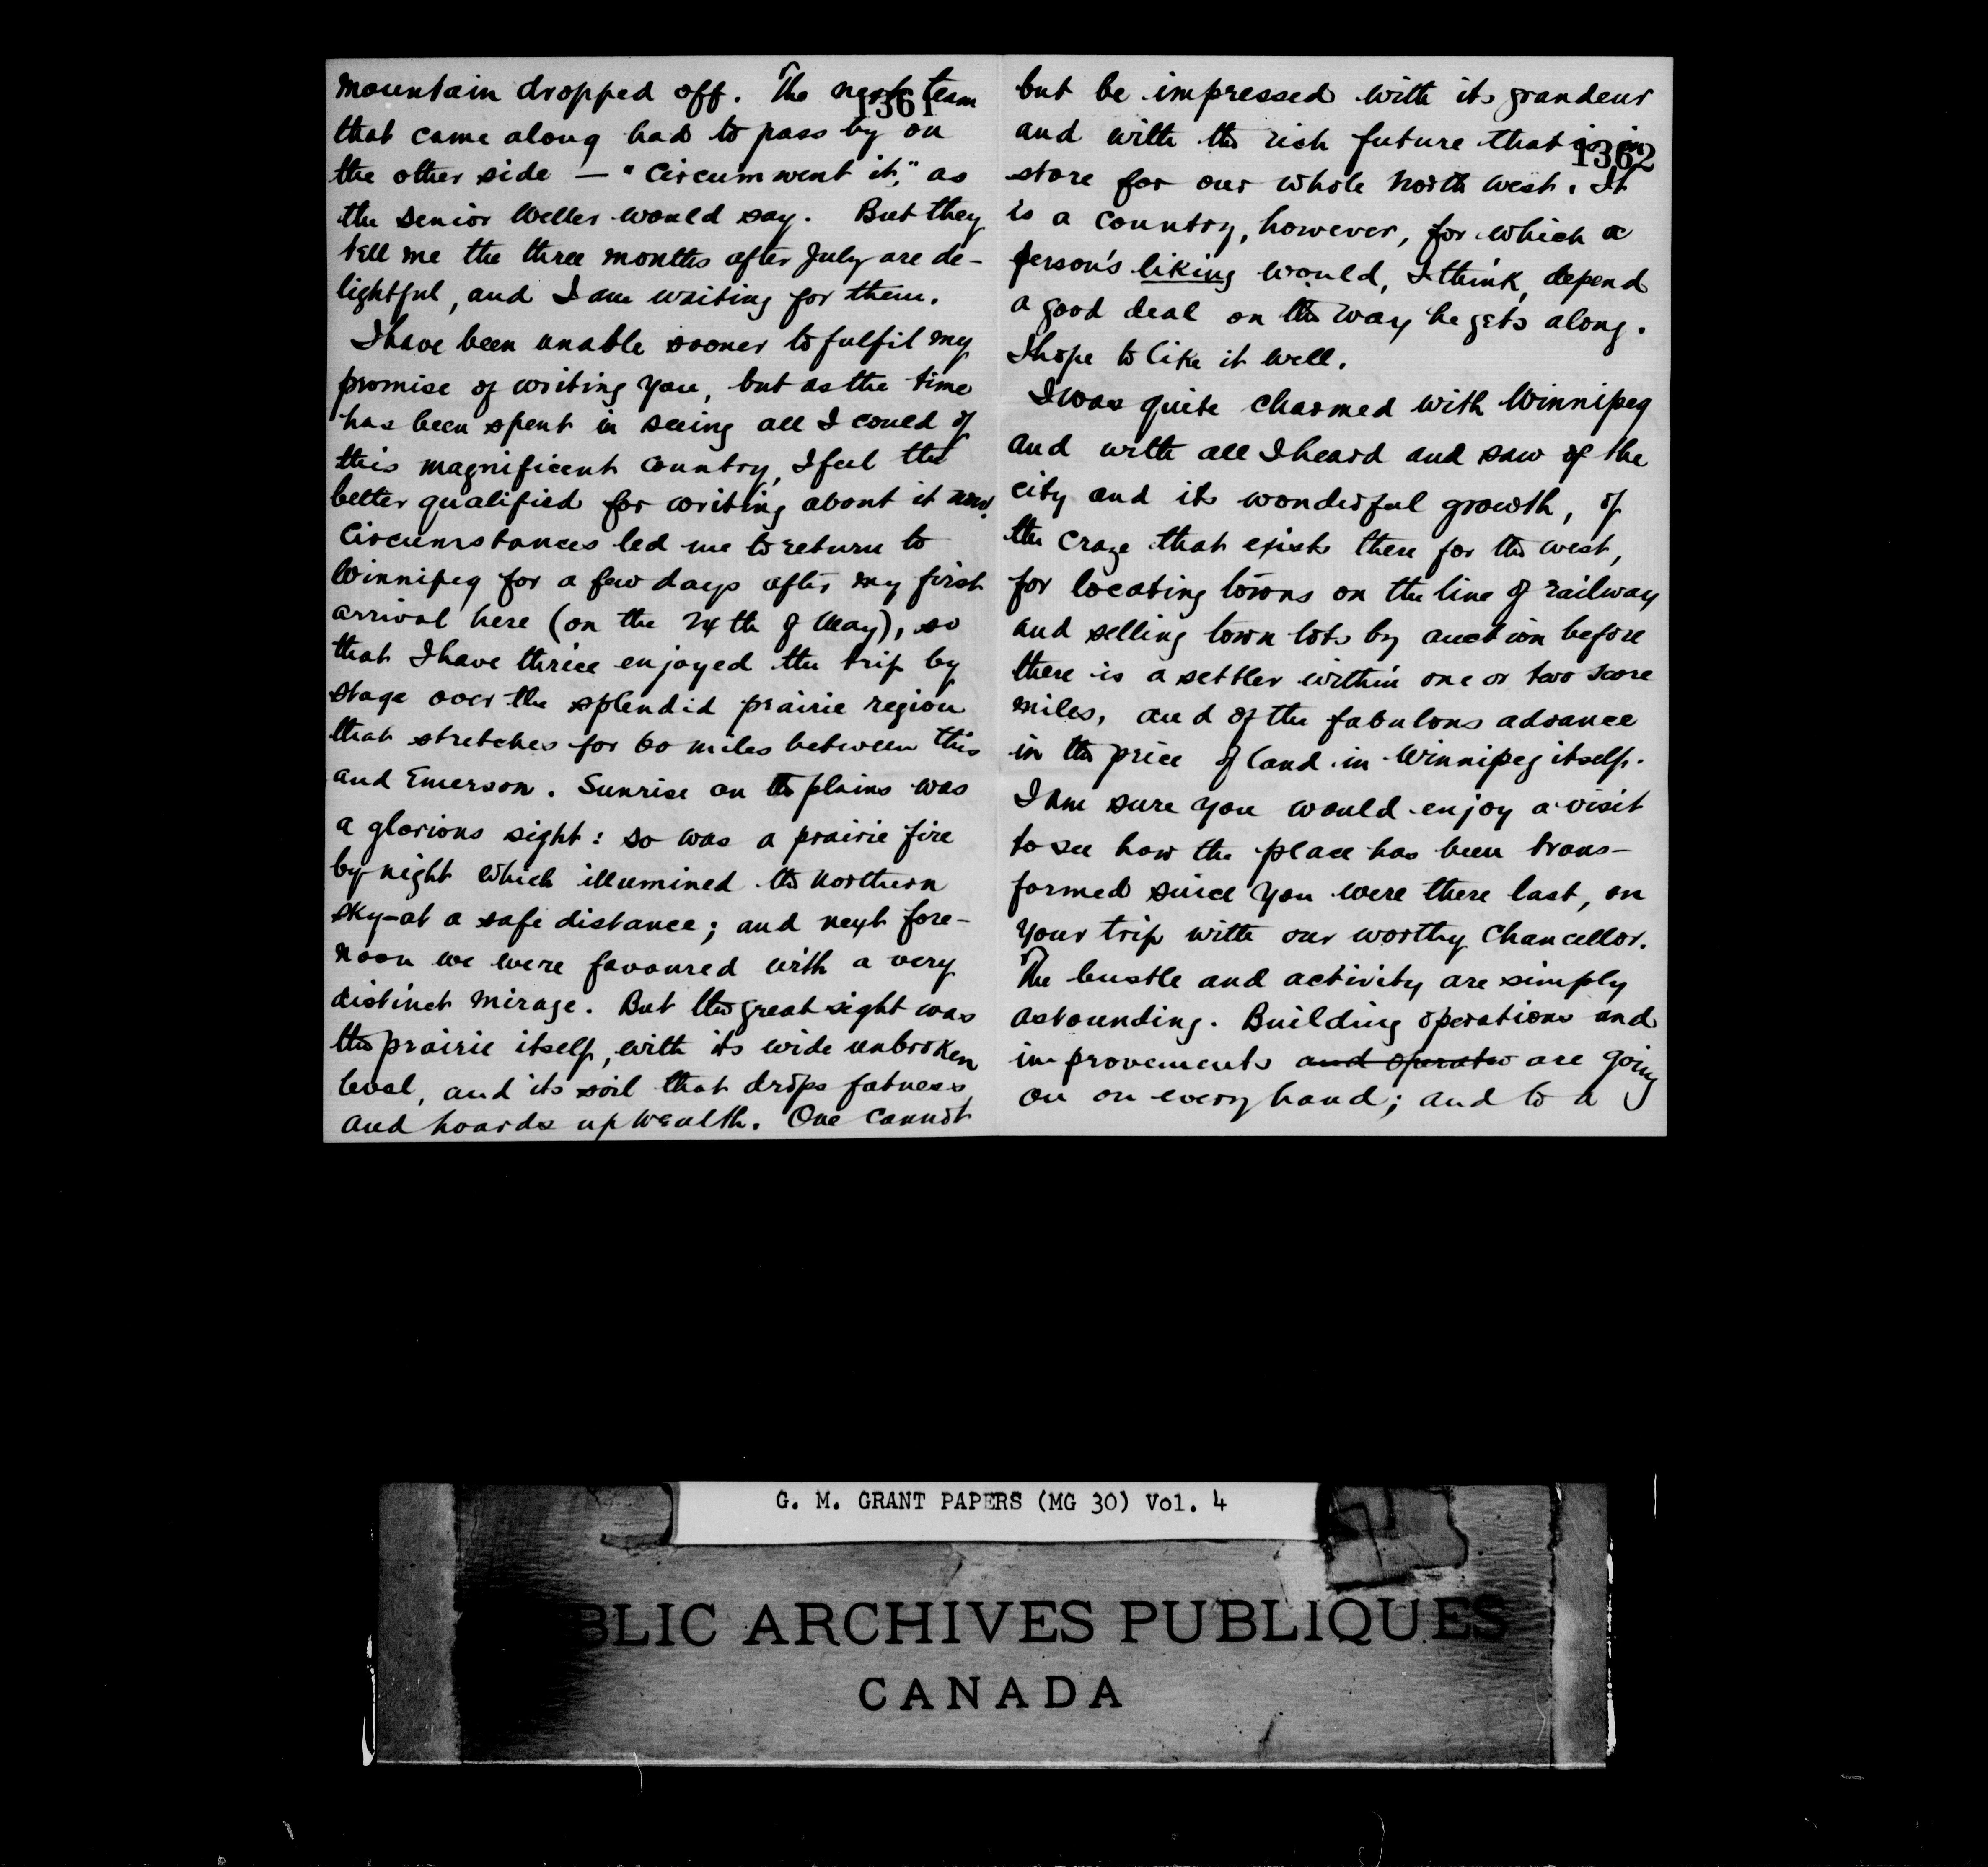 mountain dropped off. The next team
1361
that came along had to pass by on
the other side — "Circumwent it," as
the senior Weller would say. But they
tell me the three months after July are de-
lightful, and I am waiting for them.
I have been unable sooner to fulfil my
promise of writing you, but as the time
has been spent in seeing all I could of
this magnificent country, I feel the
better qualified for writing about it now.
Circumstances led me to return to
Winnipeg for a few days after my first
arrival here (on the 24th of May), so
that I have thrice enjoyed the trip by
stage over the splendid prairie region
that stretches for 60 miles between this
and Emerson. Sunrise on the plains was
a glorious sight: so was a prairie fire
by night which illumined the northern
sky—at a safe distance; and next fore-
noon we were favoured with a very
distinct mirage. But the great sight was
the prairie itself, with its wide unbroken
level, and its soil that drops fatness
and hoards up wealth. One cannot
but be impressed with its grandeur
and with the rich future that is in
1362
store for our whole North West. It
is a country, however, for which a
person's liking would, I think, depend
a good deal on the way he gets along.
I hope to like it well.
I was quite charmed with Winnipeg
and with all I heard and saw of the
city and its wonderful growth, of
the craze that exists there for the west,
for locating towns on the line of railway
and selling town lots by auction before
there is a settler within one or two score
miles, and of the fabulous advance
in the price of land in Winnipeg itself.
I am sure you would enjoy a visit
to see how the place has been trans-
formed since you were there last, on
your trip with our worthy Chancellor.
The bustle and activity are simply
astounding. Building operations and
improvements and operatio are going
on on every hand; and to a
G. M. GRANT PAPERS (MG 30) Vol. 4
BLIC ARCHIVES PUBLIQUES
CANADA